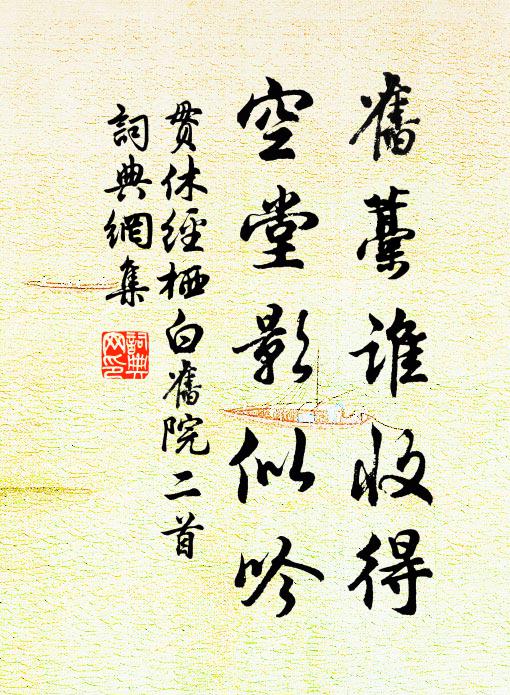 舊藁誰收得
空堂影似吟
貫休經栖白舊院二首
詞典網集
詞典網印